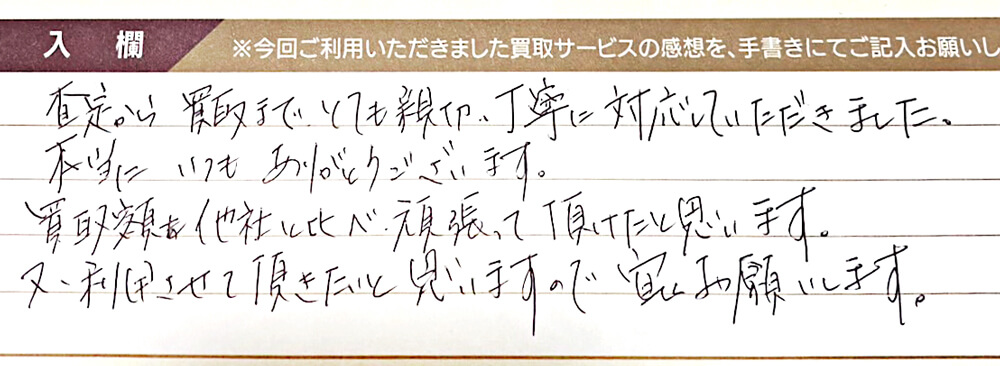 入欄
※今回ご利用いただきました買取サービスの感想を、手書きにてご記入お願いし
査定から買取まで、とても親切、丁寧に対応していただきました。
本当にいつもありがとうございます。
買取額も他社に比べ、頑張って頂けたと思います。
又、利用させて頂きたいと思いますので宜しくお願いします。